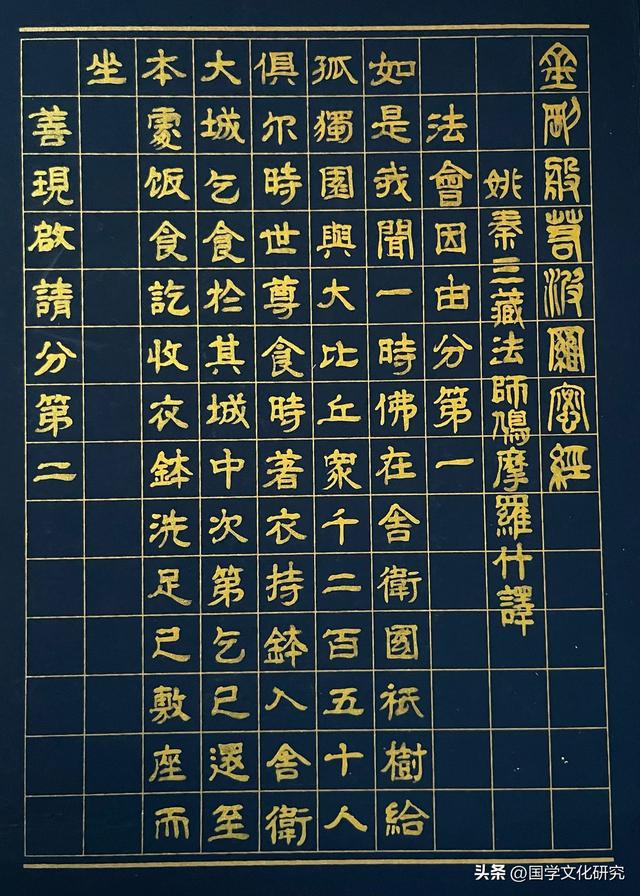 金剛般若波羅蜜經
姚秦三藏法師鳩摩羅什譯
法會因由分第一
如是我聞一時佛在舍衛國祇樹給
孤獨園與大比丘衆千二百五十人
俱尔時世尊食時著衣持鉢入舍衛
大城乞食於其城中次第乞已還至
本處饭食訖收衣鉢洗足已敷座而
坐
善現啟請分第二
头条 @国学文化研究